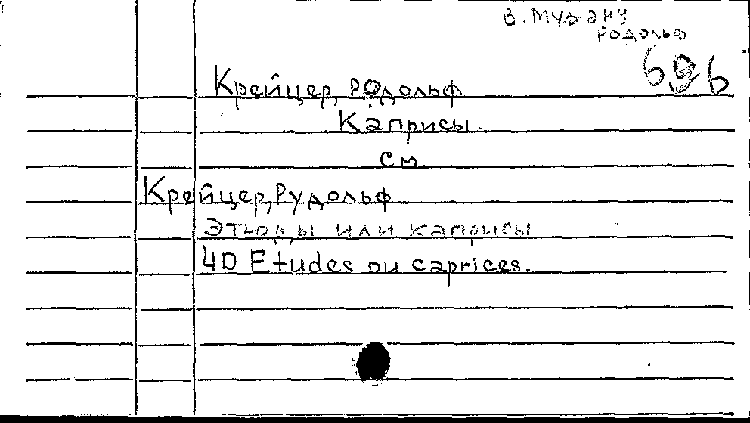 Родольф
696
Крейцер, Родольф
Каприсы
см
Крейцер, Рудольф
Этюды или каприсы
40 Etudes ou caprices.